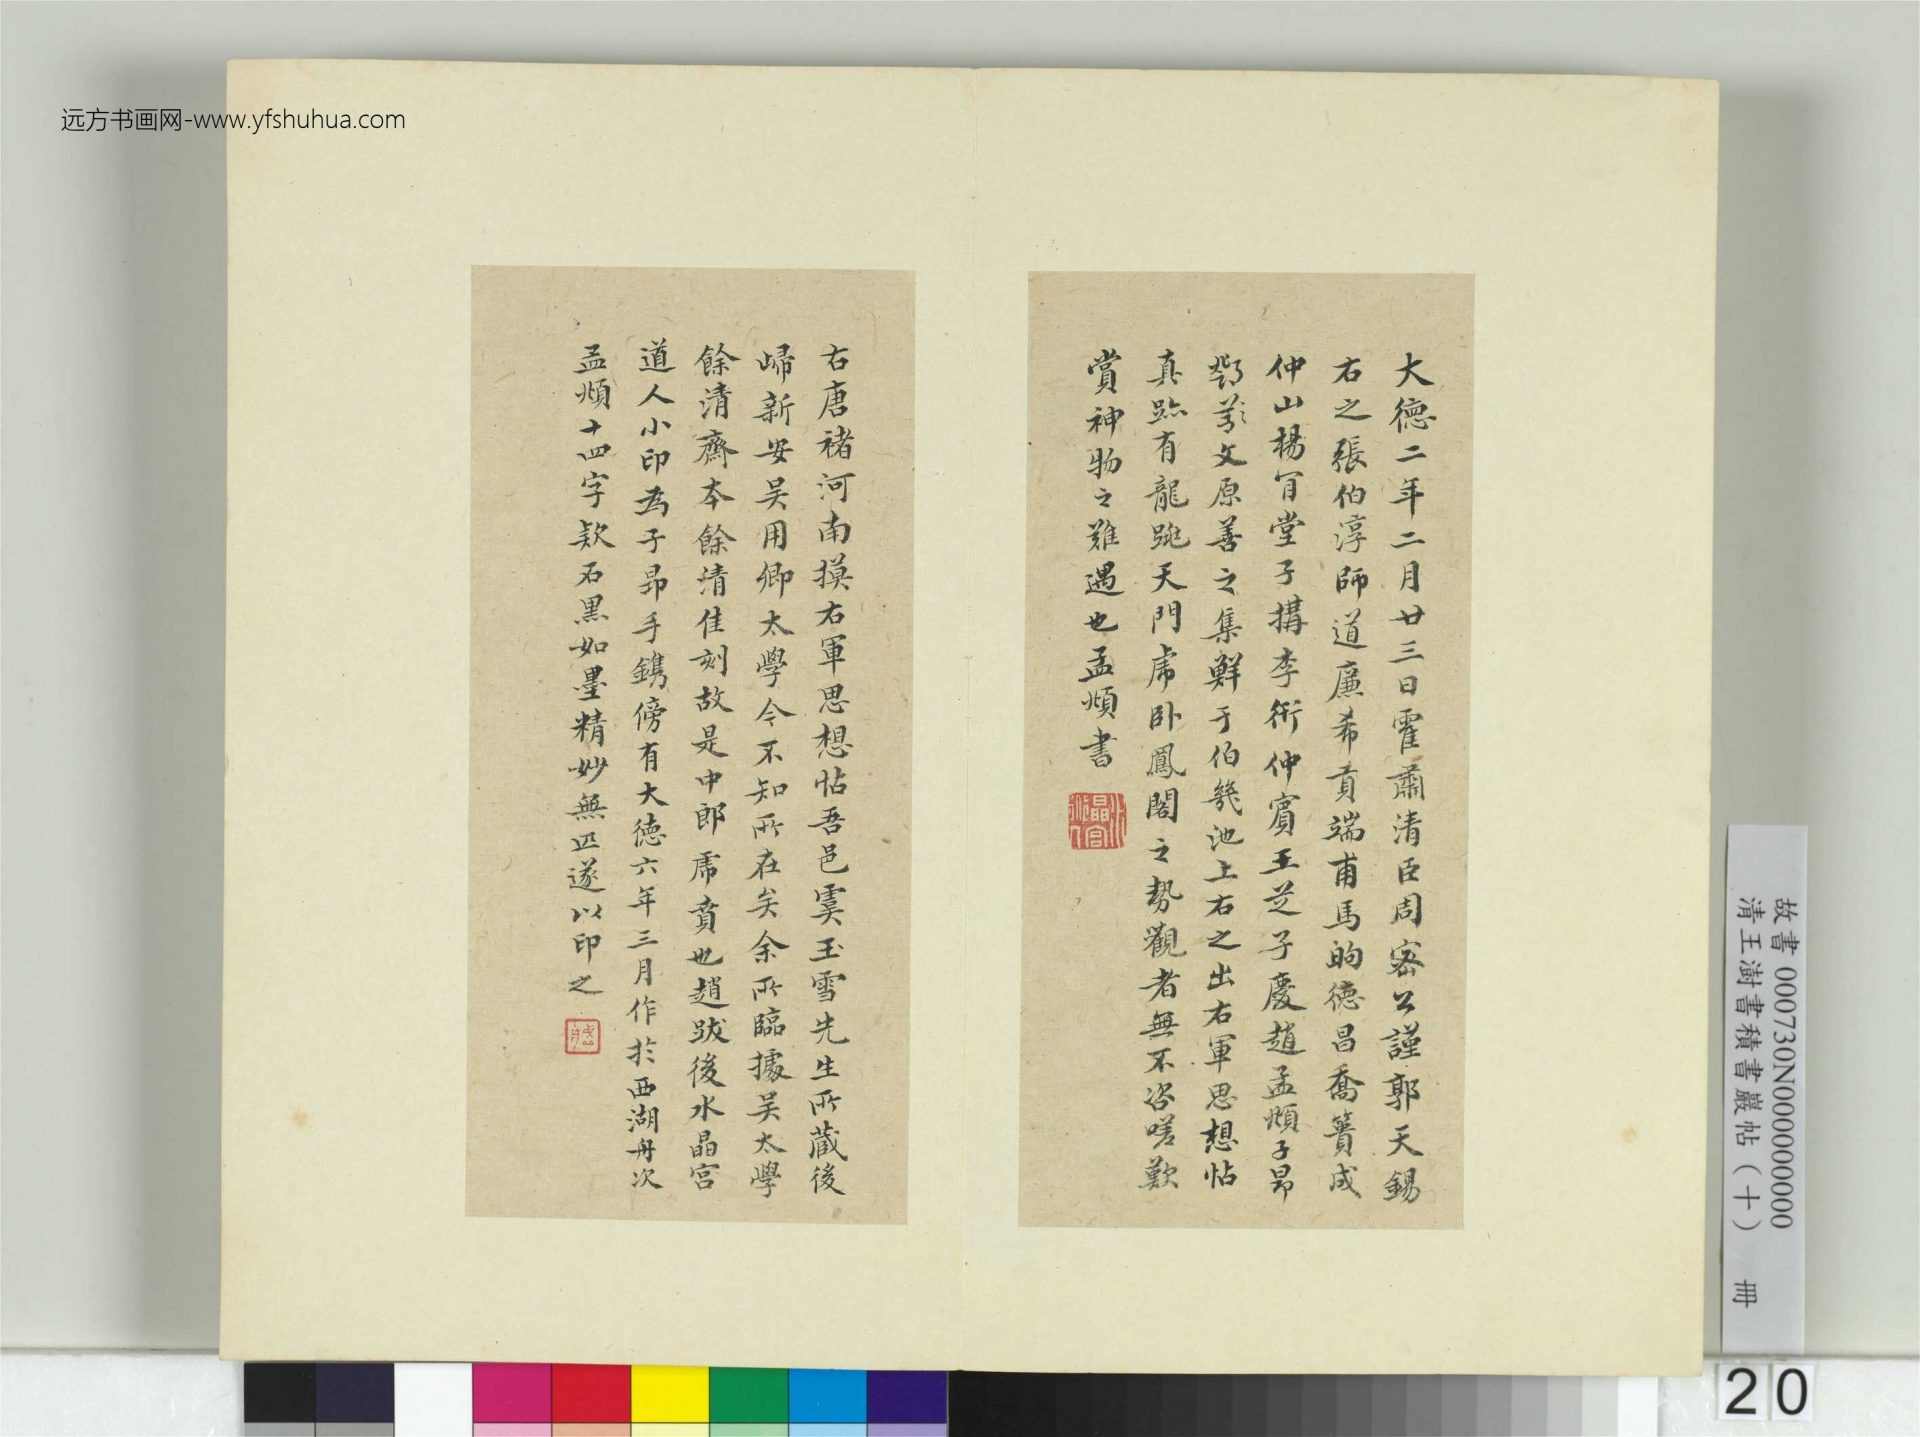 远方书画网-www.yfshuhua.com
大德二年二月廿三日霍肅清臣周密公謹郭天錫
右之張伯淳師道廉希貢端甫馬昫德昌喬簣成
仲山楊肎堂子構李衎仲賓王芝子慶趙孟頫子昂
鄧文原善之集鮮于伯幾池上右之出右軍思想帖
真跡有龍跳天門虎卧鳳閣之勢觀者無不咨嗟歎
賞神物之難遇也孟頫書
右唐褚河南摸右軍思想帖吾邑虞玉雪先生所藏後
歸新安吴用卿太學今不知所在矣余所臨據吴太學
餘清齋本餘清佳刻故是中郎虎賁也趙跋後水晶宫
道人小印為子昂手鐫傍有大德六年三月作於西湖舟次
孟頫十四字欵石黒如墨精妙無匹遂以印之
故書 000730N000000000
清王澍書積書巖帖（十） 冊
20